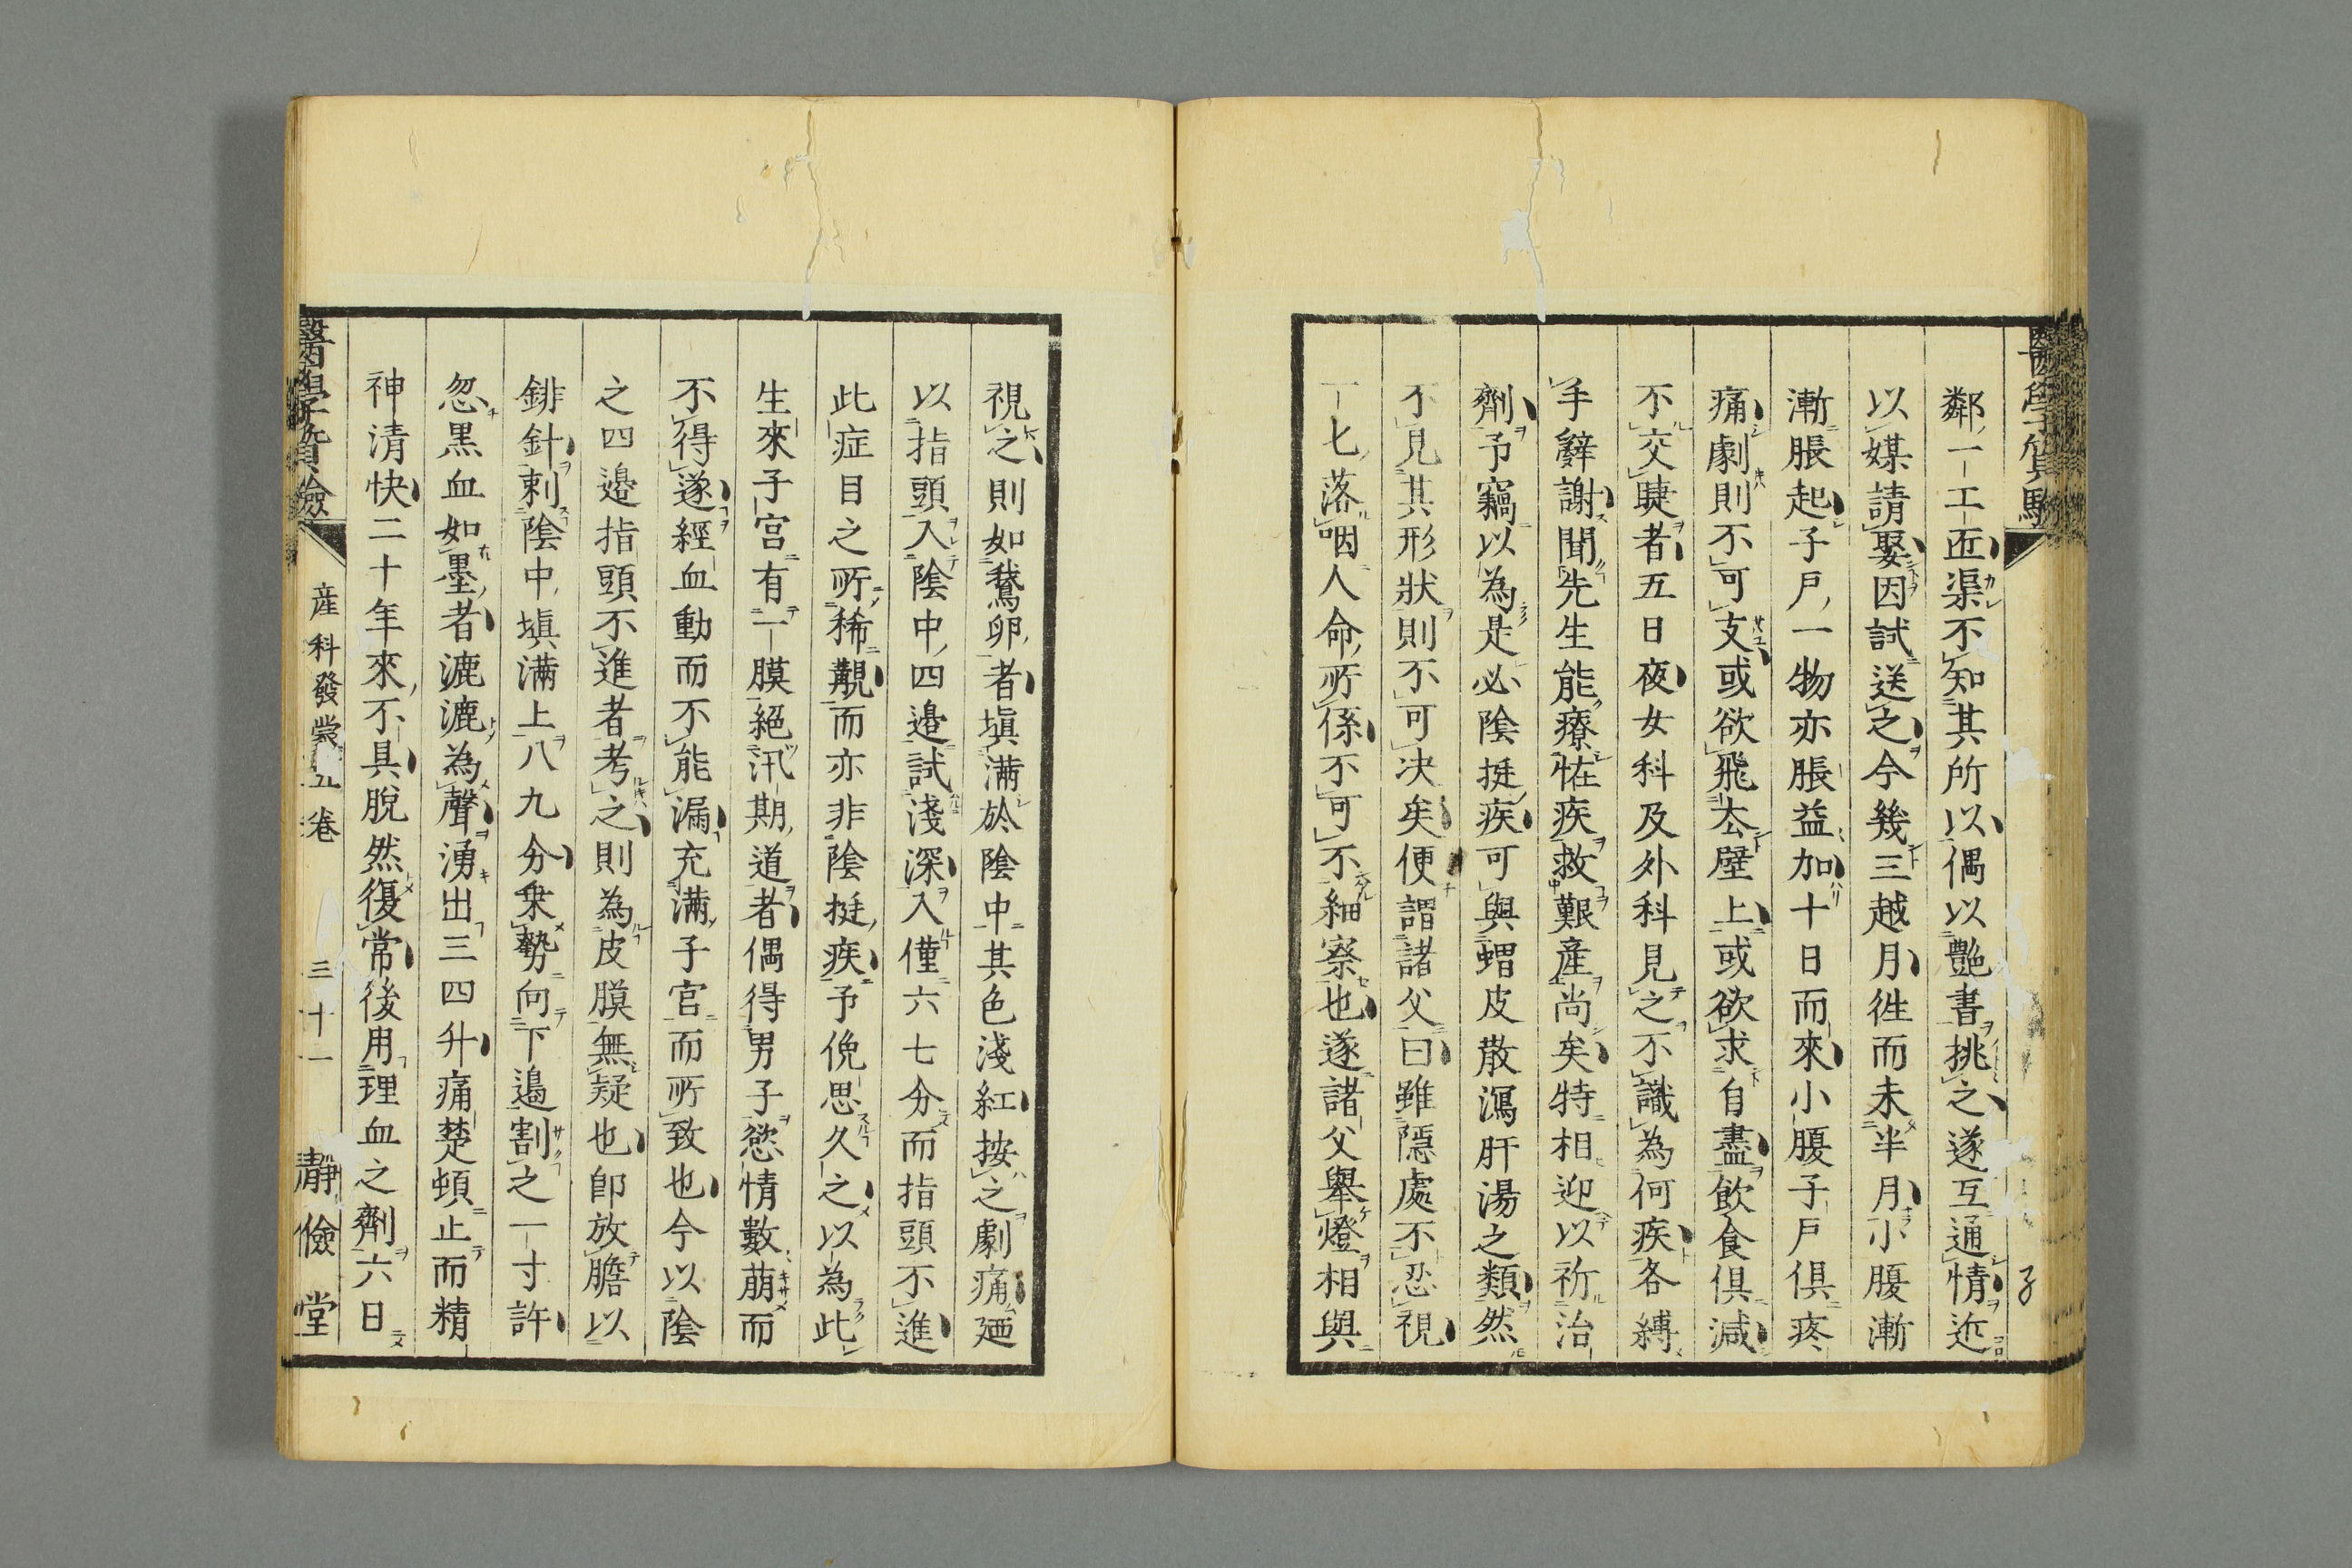 鄰一工匠渠不知其所以偶以艶書挑之遂互通情近
以媒請娶因試送之今幾三越月徃而未半月小腹漸
漸脹起子戸一物亦脹益加十日而來小腹子戸倶疼
痛劇則不可支或欲飛太壁上或欲求自盡飲食倶減
不交睫者五日夜女科及外科見之不識為何疾各縛
手辭謝聞先生能療恠疾救艱産尚矣特相迎以祈治
劑予竊以為是必陰挺疾可與蝟皮散瀉肝湯之類然
不見其形狀則不可决矣便謂諸父曰雖隱處不忍視
一七落咽人命所係不可不細察也遂諸父舉燈相與
視之則如鵞卵者塡滿於陰中其色淺紅按之劇痛廼
以指頭入陰中四邉試淺深入僅六七分而指頭不進
此症目之所稀覯而亦非陰挺疾予俛思久之以為此
生來子宮有一膜絕汛期道者偶得男子慾情數萠而
不得遂經血動而不能漏充滿子宮而所致也今以陰
之四邉指頭不進者考之則為皮膜無疑也卽放膽以
鋍針刺陰中塡滿上八九分乗勢向下邉割之一寸許
忽黒血如墨者漉漉為聲湧出三四升痛楚頓止而精
神清快二十年來不具脫然復常後用理血之劑六日
醫學質驗 産科發蒙五卷 三十一 靜儉堂